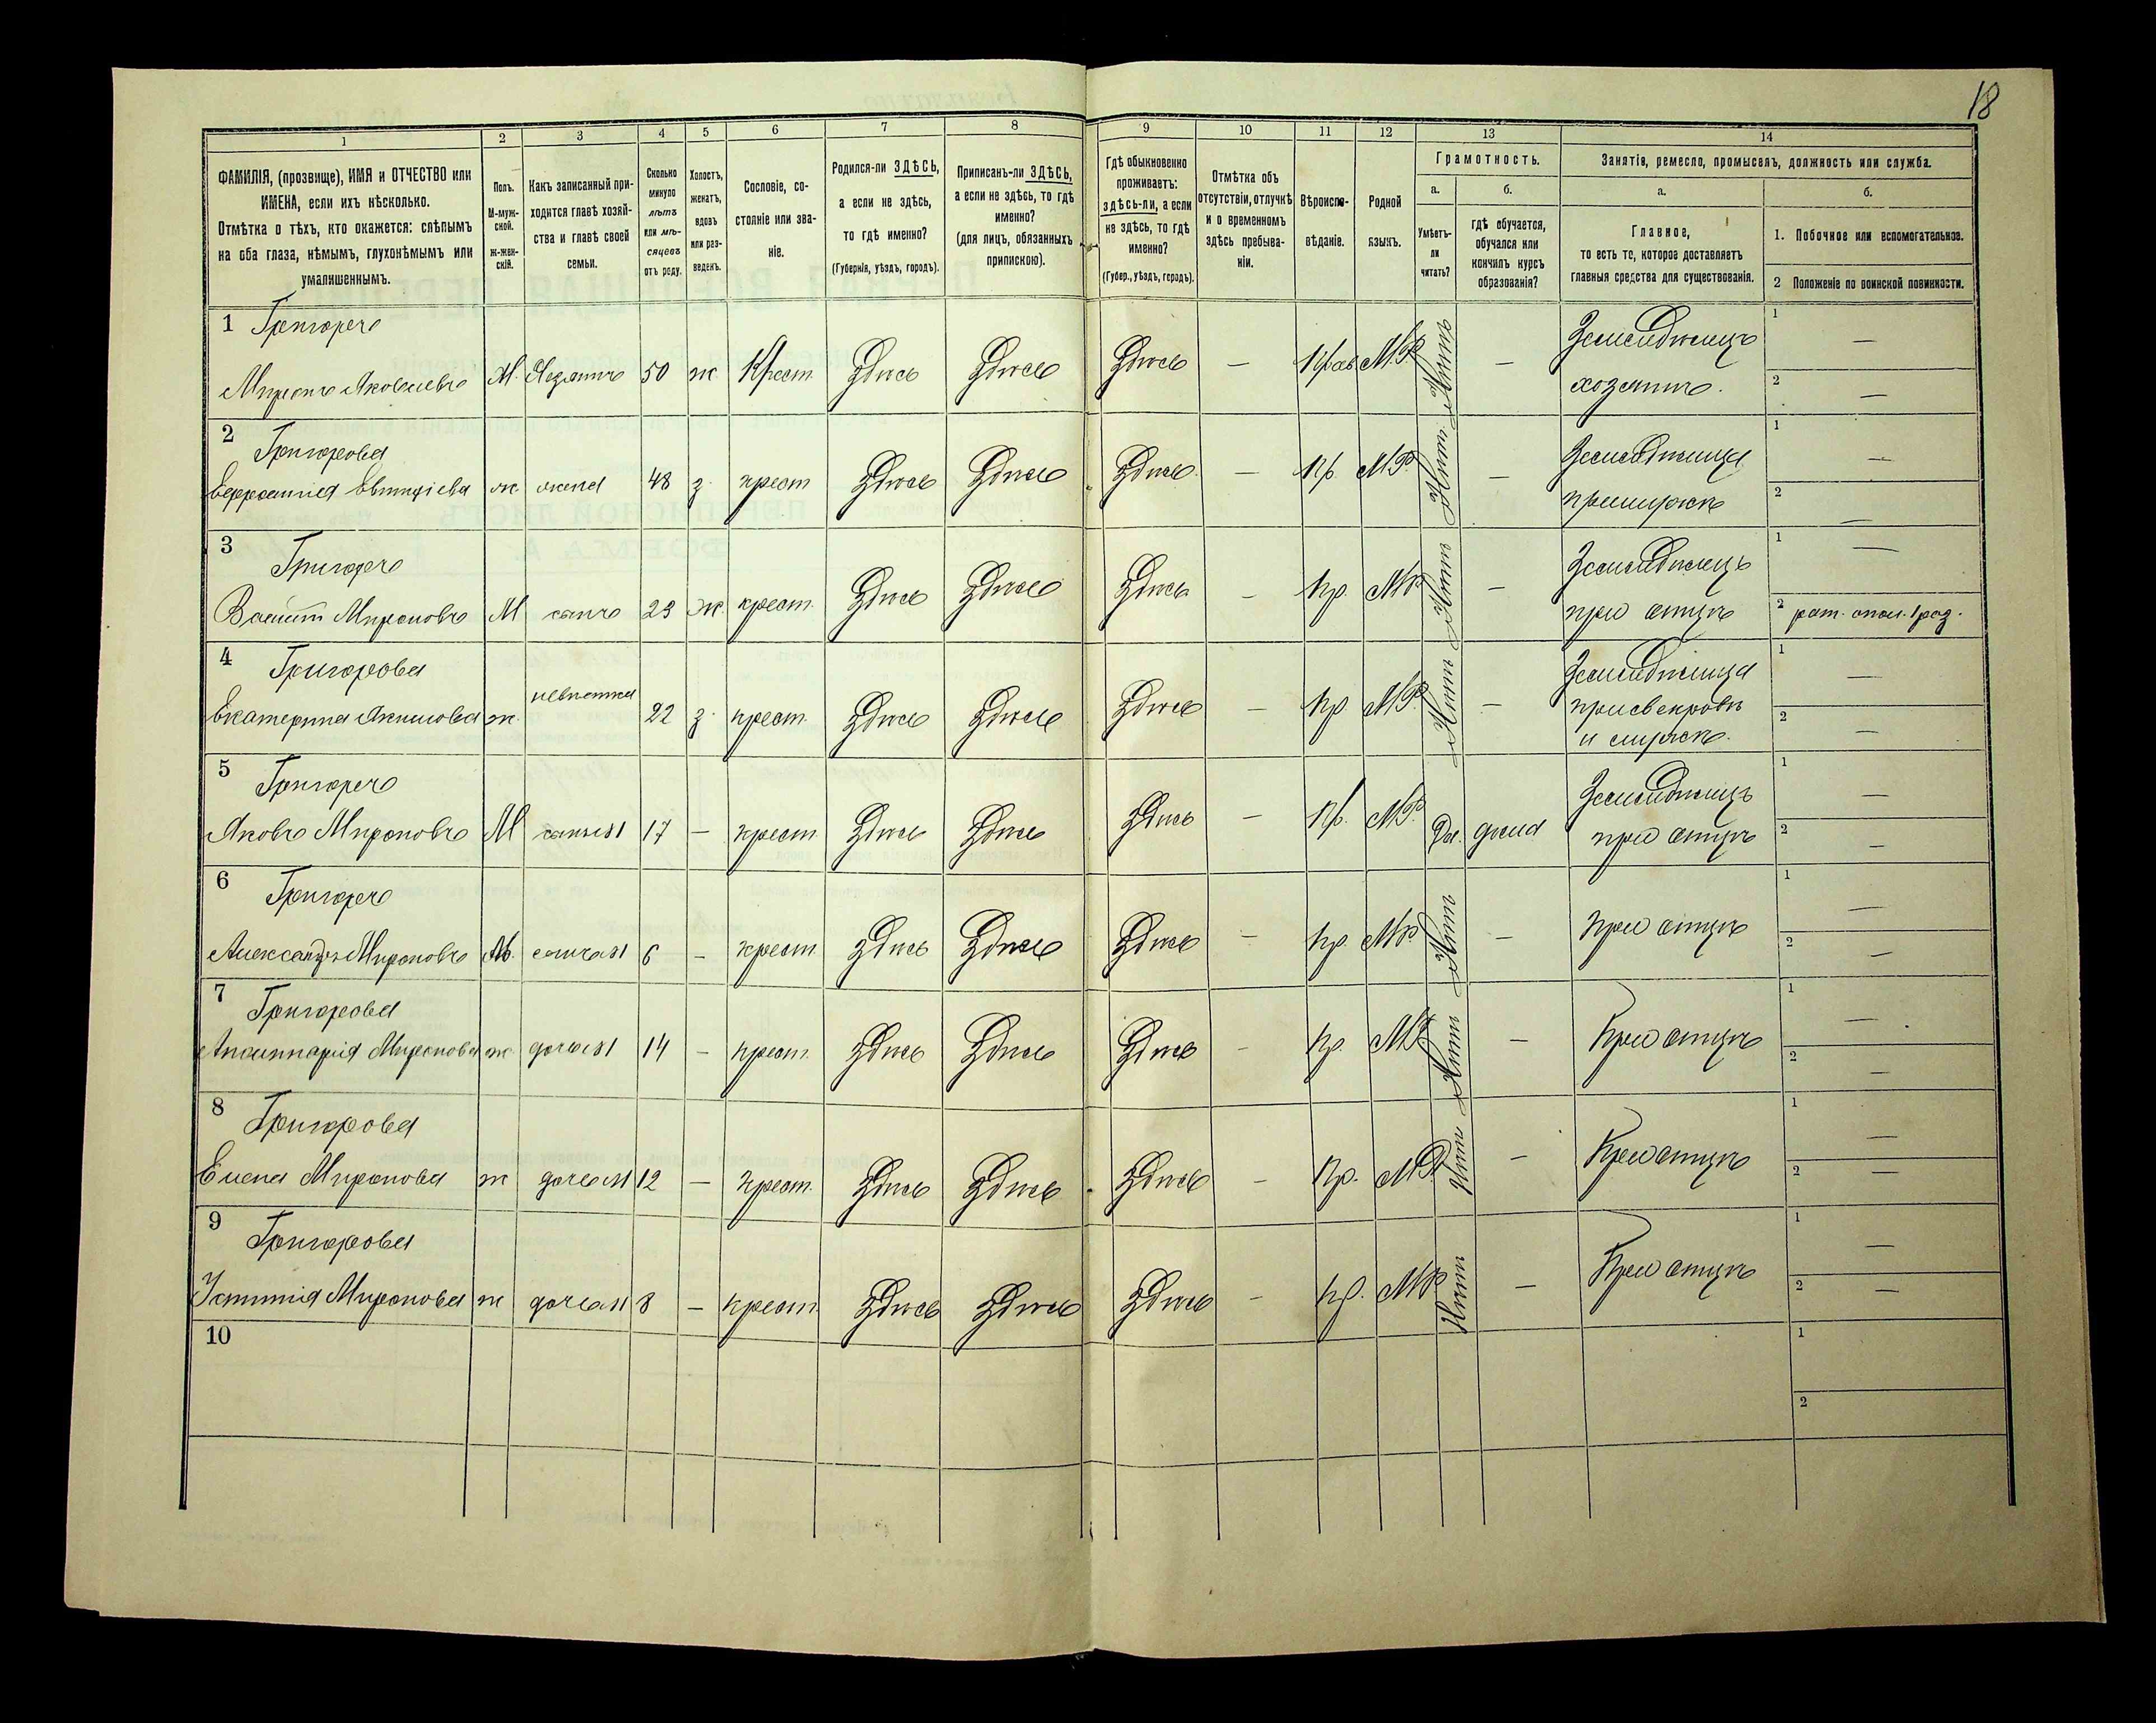 18
1 2 3 4 5 6 7 8 9 10 11 12 13 14
ФАМИЛІЯ, (прозвище), ИМЯ и ОТЧЕСТВО или
ИМЕНА, если ихъ нѣсколько.
Отмѣтка о тѣхъ, кто окажется: слѣпымъ
на оба глаза, нѣмымъ, глухонѣмымъ или
умалишеннымъ.
Полъ.
М-муж-
ской.
ж-жен-
скій.
Какъ записанный при-
ходится главѣ хозяй-
ства и главѣ своей
семьи.
Сколько
минуло
лѣтъ
или мѣ-
сяцевъ
отъ роду.
Холостъ,
женатъ,
вдовъ
или раз-
веденъ.
Сословіе, со-
стояніе или зва-
ніе.
Родился-ли ЗДѢСЬ,
а если не здѣсь,
то гдѣ именно?
(Губернія, уѣздъ, городъ).
Приписанъ-ли ЗДѢСЬ,
а если не здѣсь, то гдѣ
именно?
(для лицъ, обязанныхъ
припискою).
Гдѣ обыкновенно
проживаетъ:
здѣсь-ли, а если
не здѣсь, то гдѣ
именно?
(Губер., уѣздъ, городъ).
Отмѣтка объ
отсутствіи, отлучкѣ
и о временномъ
здѣсь пребыва-
ніи.
Вѣроиспо-
вѣданіе.
Родной
языкъ.
Грамотность.
а.
Умѣетъ-
ли
читать?
б.
гдѣ обучается,
обучался или
кончилъ курсъ
образованія?
Занятія, ремесло, промыселъ, должность или служба.
а.
Главное,
то есть то, которое доставляетъ
главныя средства для существованія.
б.
1. Побочное или вспомогательное.
2 Положеніе по воинской повинности.
1 Григоре
Миронъ Яковлевъ М. Хозяинъ 50 ж Крест. Здѣсь Здѣсь Здѣсь — Прав М.Р. Нѣтъ — Земледѣлецъ
хозяинъ.
1 —
2 —
2 Григорова
Евфросинія ж жена 48 з. крест Здѣсь Здѣсь Здѣсь — Пр. М.Р. Нѣтъ — Земледѣлица
1 —
2 —
3 Григоре
Мироновъ М сынъ 23 ж. крест. Здѣсь Здѣсь Здѣсь — Пр. МР Нѣтъ — Земледѣлецъ
при отцѣ
1 —
2 рат. опол. 1 раз.
4 Григорова
Екатерина ж. невѣстка 22 з. крест. Здѣсь Здѣсь Здѣсь — Пр МР Нѣтъ — Земледѣлица
при свекровѣ
1 —
2 —
5 Григоре
Яковъ Мироновъ М сынъ 17 — крест Здѣсь Здѣсь Здѣсь — Пр. МР. Да. дома Земледѣлецъ
при отцѣ
1 —
2 —
6 Григоре
Александръ Мироновъ М. сынъ 6 — крест Здѣсь Здѣсь Здѣсь — Пр МР Нѣтъ — при отцѣ
1 —
2 —
7 Григорова
Аполинарія Миронова ж дочь 14 — крест. Здѣсь Здѣсь Здѣсь — Пр. МР Нѣтъ — При отцѣ
1 —
2 —
8 Григорова
Елена Миронова ж дочь 12 — крест. Здѣсь Здѣсь Здѣсь — Пр. МР Нѣтъ — При отцѣ
1 —
2 —
9 Григорова
Устинія Миронова ж дочь 8 — крест. Здѣсь Здѣсь Здѣсь — Пр. МР Нѣтъ — При отцѣ
1 —
2 —
10
1
2